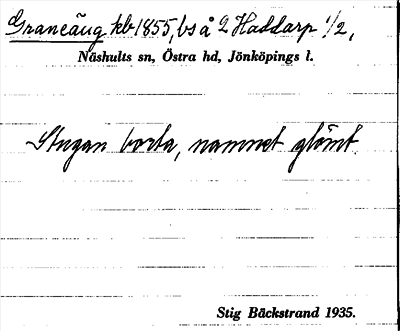 Graneäng kb 1855, bs å 2 Haddarp 1/2,
Näshults sn, Östra hd, Jönköpings l.
Stugan borta, namnet glömt.
Stig Bäckstrand 1935.